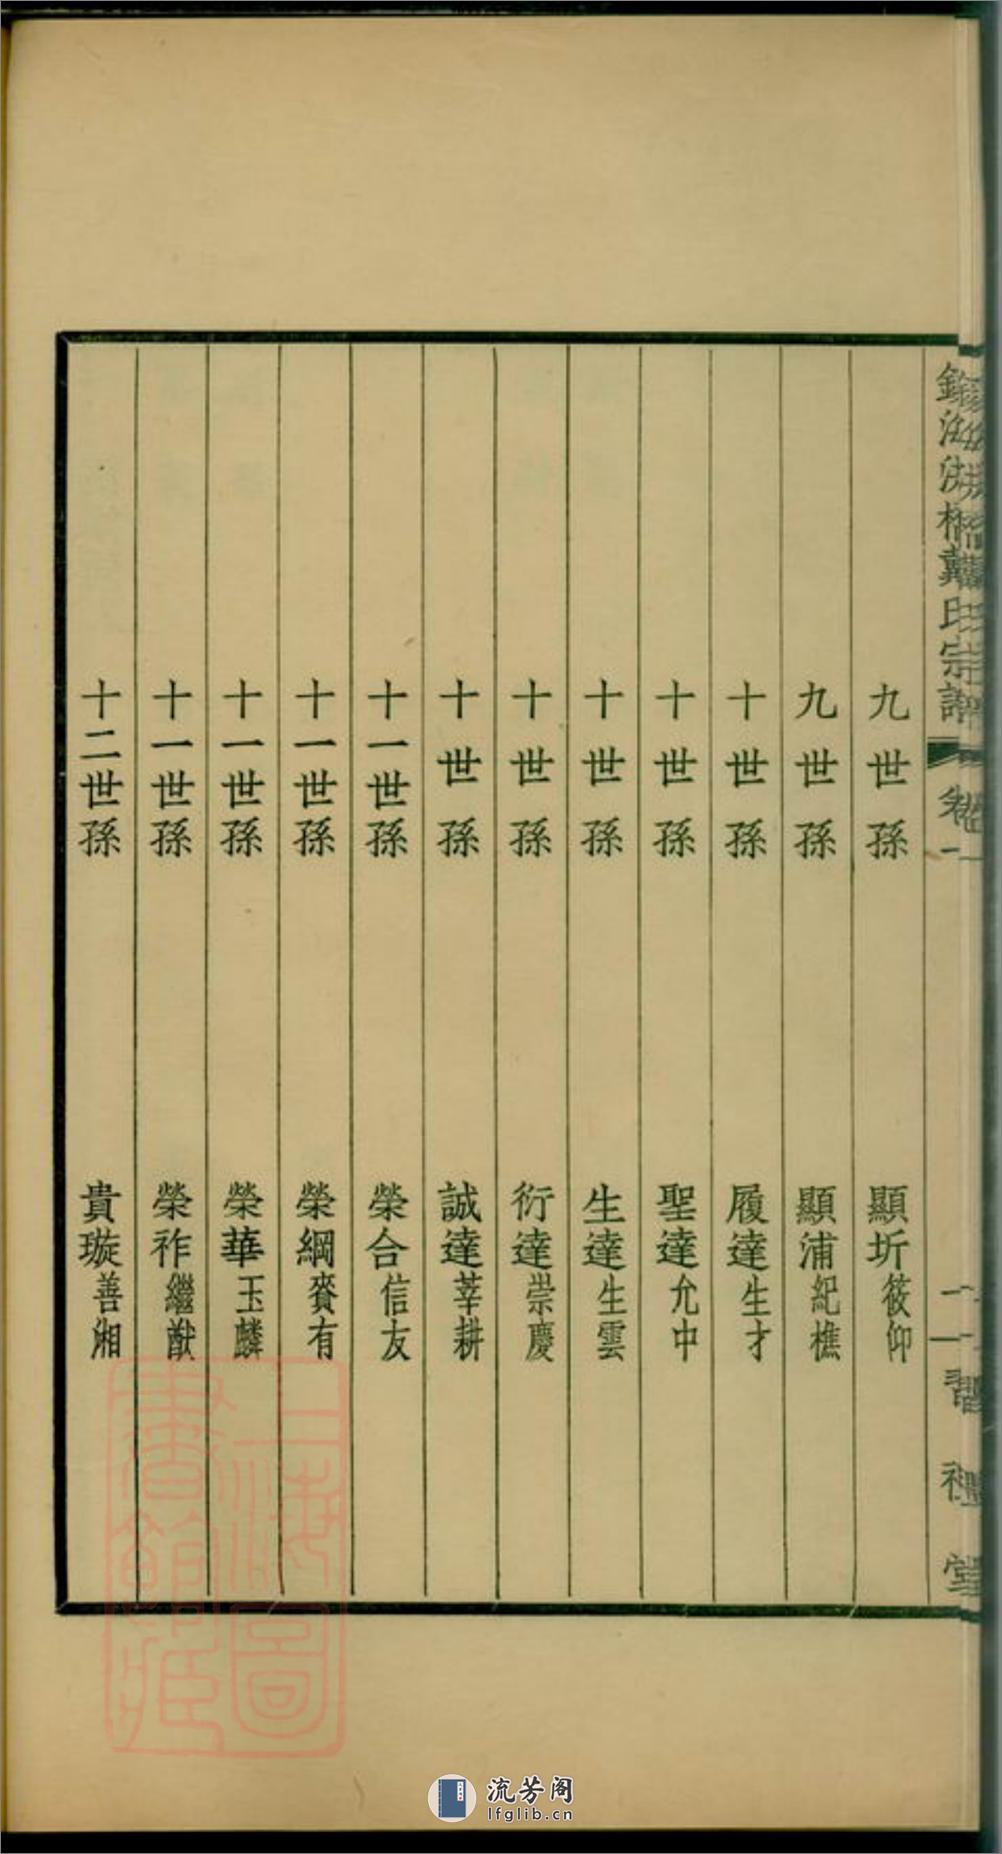 戴氏宗譜
卷一
習禮堂
九世孫 顯圻筱仰
九世孫 顯浦紀樵
十世孫 履達生才
十世孫 聖達允中
十世孫 生達生雲
十世孫 衍達崇慶
十世孫 誠達莘耕
十一世孫 榮合信友
十一世孫 榮綱賚有
十一世孫 榮華玉麟
十一世孫 榮祚繼猷
十二世孫 貴璇善湘
上海圖書館藏
流芳阁
lfglib.cn